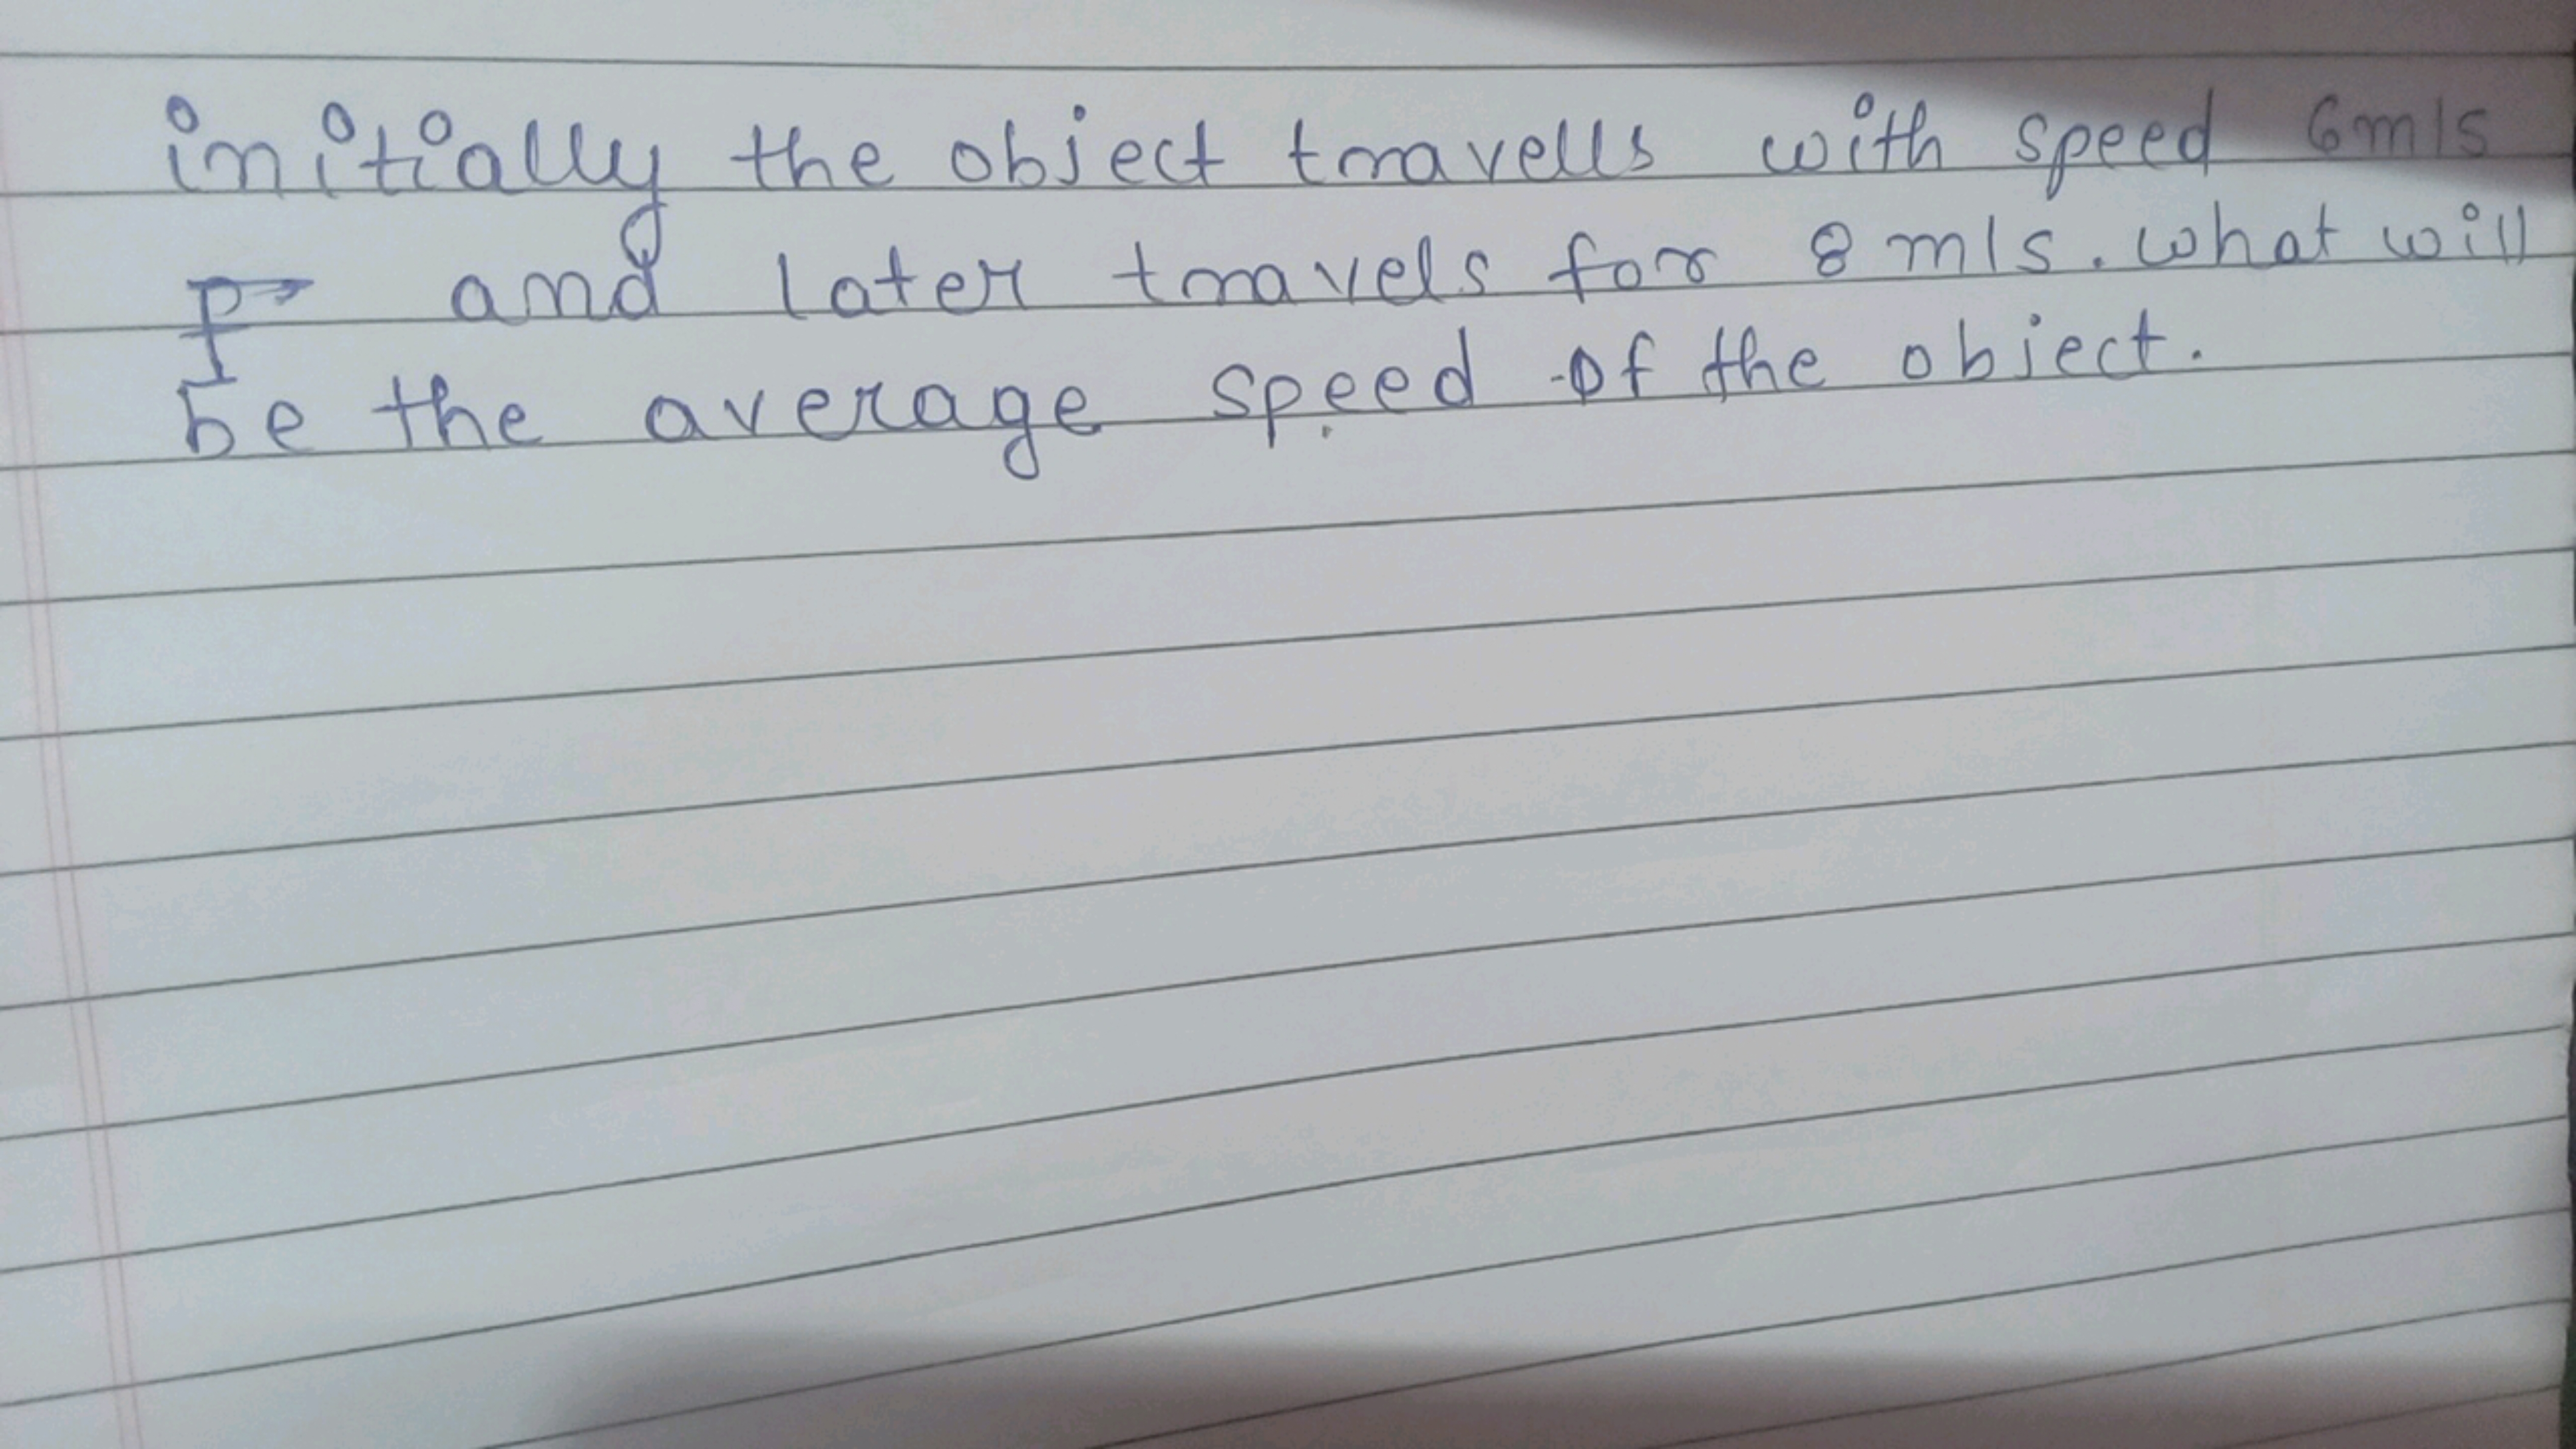 initially the object travells with speed 6m/s
and later travels for 8 m/s. what will
be the average speed of the object.